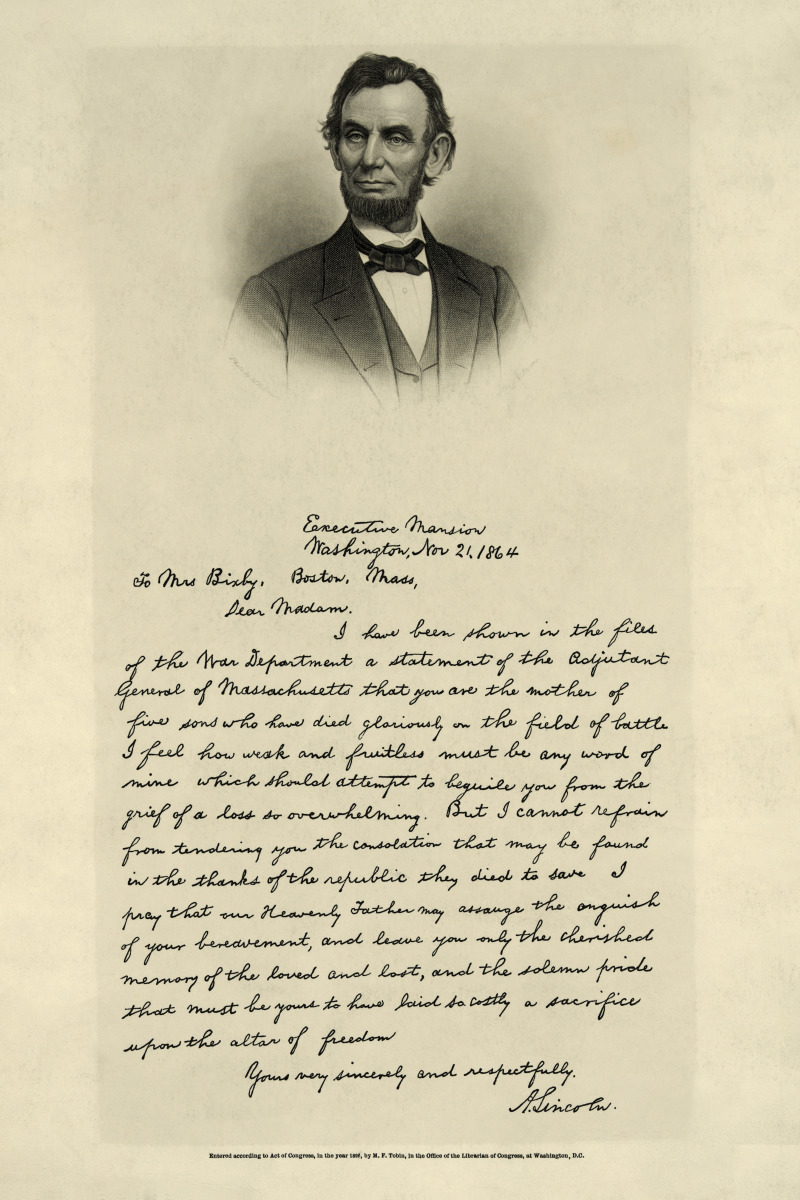 Executive Mansion
Washington, Nov 21, 1864
To Mrs Bixby, Boston, Mass,
Dear Madam.
I have been shown in the files
of the War Department a statement of the Adjutant
General of Massachusetts that you are the mother of
five sons who have died gloriously on the field of battle
I feel how weak and fruitless must be any word of
mine which should attempt to beguile you from the
grief of a loss so overwhelming. But I cannot refrain
from tendering you the consolation that may be found
in the thanks of the republic they died to save I
pray that our Heavenly Father may assauge the anguish
of your bereavement, and leave you only the cherished
memory of the loved and lost, and the solemn pride
that must be yours to have laid so costly a sacrifice
upon the altar of freedom
Yours very sincerely and respectfully.
A. Lincoln.
Entered according to Act of Congress, in the year by M. F. Tobin, in the Office of the Librarian of Congress, at Washington, D.C.